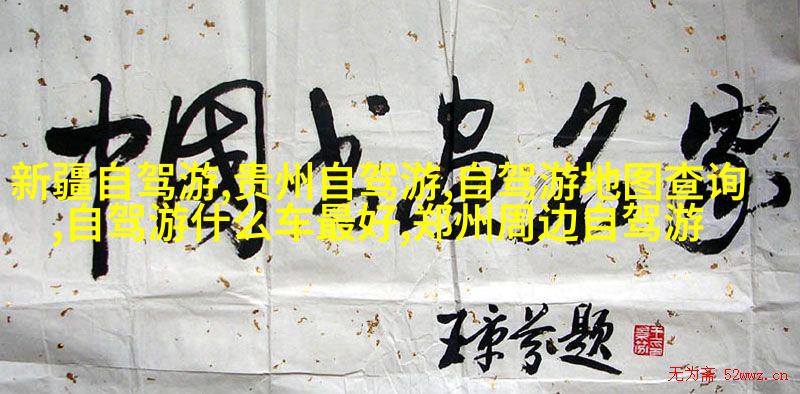 中國书画名家
新疆自驾游,贵州自驾游,自驾游地图查询
,自驾游什么车最好,郑州周边自驾游
王景芬题
无为斋 52wwz.cn